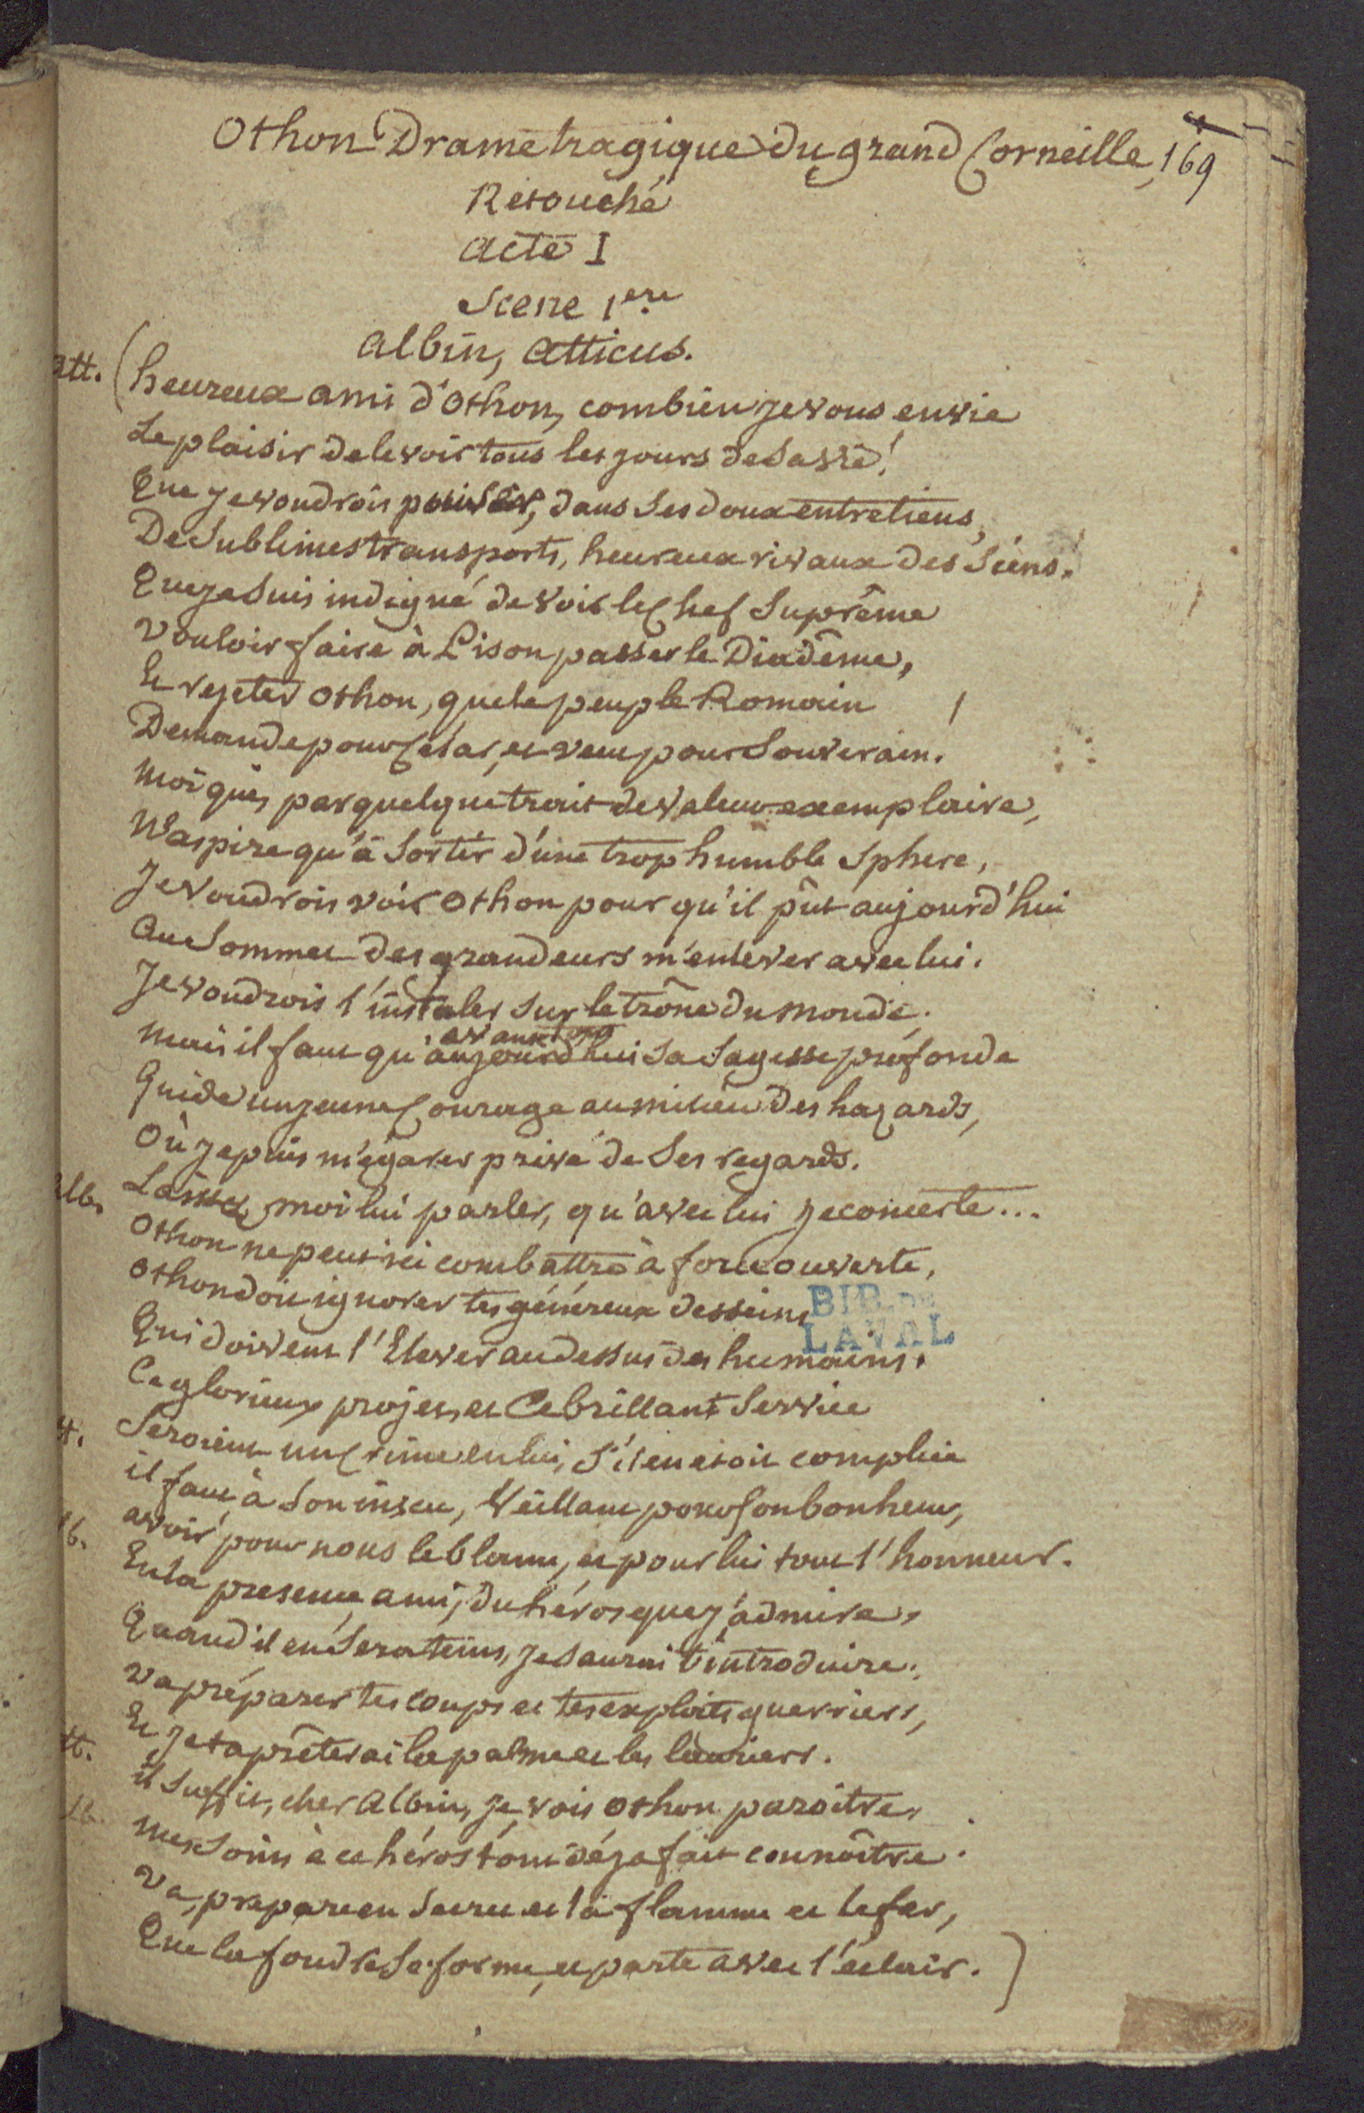 Othon Drame tragique du grand Corneille, 169
Retouché
acte I
Scene 1ere
albin, atticus.
att. (heureux ami d'Othon, combien je vous envie
Le plaisir de le voir tous les jours de sa vie!
Que je voudrois puiser, dans ses doux entretiens,
De sublimes transports, heureux rivaux des siens.
Que je suis indigné de voir le Chef Suprême
vouloir faire à Pison passer le Diadême,
Et rejeter Othon, que le peuple Romain
Demande pour Cesar, et veut pour Souverain.
moi qui, par quelque trait de valeur exemplaire,
N'aspire qu'à sortir d'une trop humble Sphere,
Je voudrois voir Othon pour qu'il pût aujourd'hui
au Sommet des grandeurs m'enlever avec lui.
Je voudrois l'instaler sur le trône du monde;
avant
mais il faut qu'aujourd'hui sa sagesse profonde
Guide un jeune Courage au milieu des hazards,
Où je puis m'égarer privé de ses regards.
alb. Laissez moi lui parler, qu'avec lui je concerte...
Othon ne peut ici combattre à force ouverte,
Othon doit ignorer tes généreux desseins
Qui doivent l'Elever au dessus des humains.
BIB. DE
LAVAL
Ce glorieux projet, et ce brillant service
tt. Seroient un Crime en lui, s'il en etoit complice
il faut à son insçu, veillant pour son bonheur,
lb. avoir pour nous le blame, et pour lui tout l'honneur.
En la presence, ami, du héros que j'admire,
Quand il en sera tems, je saurai t'introduire.
va préparer tes coups et tes exploits guerriers,
Et je t'apprêterai la palme et les lauriers.
tt. il suffit, cher albin, je vois Othon paroître,
lb. mes soins à ce héros t'ont déja fait connoître.
va, prepare en secret et la flamme et le fer,
Que la foudre se forme, et parte avec l'éclair.)